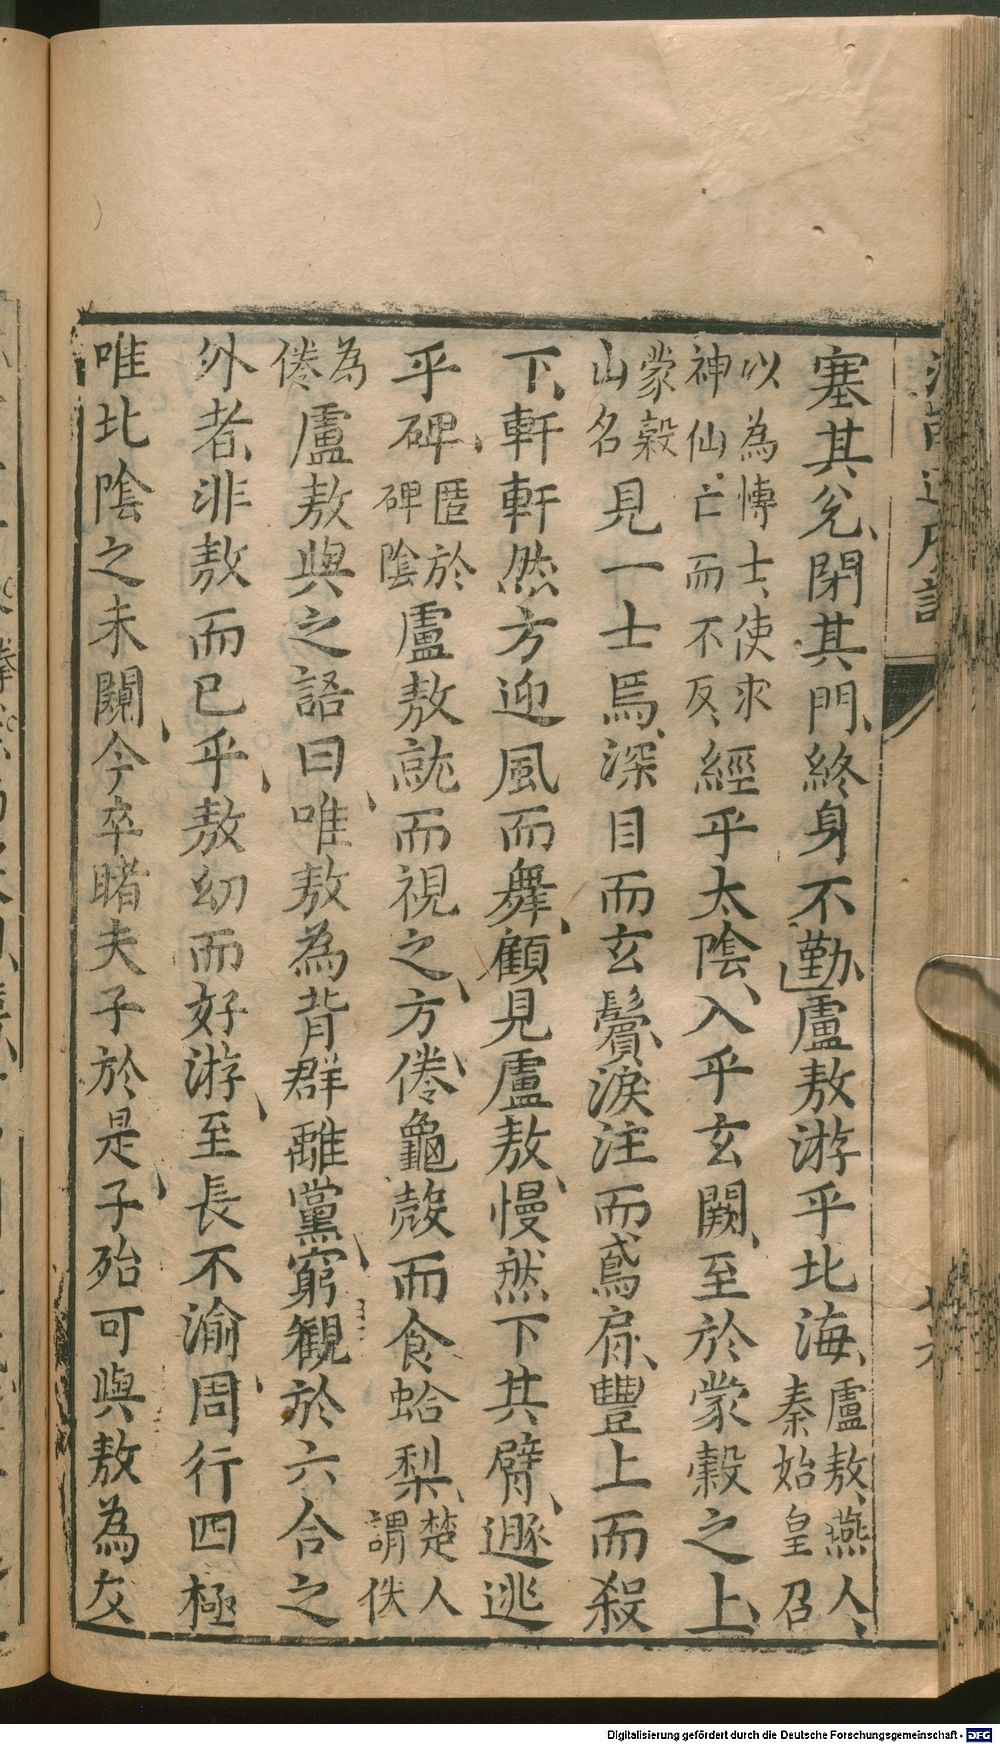 塞其兊閉其門終身不勤盧敖游乎北海盧敖燕人秦始皇召
以為博士使求神仙亡而不反經乎太陰入乎玄闕至於蒙穀之上
蒙穀山名見一士焉深目而玄鬢淚注而鳶肩豐上而殺
下軒軒然方迎風而舞顧見盧敖慢然下其臂遯逃
乎碑匿於碑陰盧敖就而視之方倦龜殼而食蛤梨楚人謂倦
為倦盧敖與之語曰唯敖為背群離黨窮觀於六合之
外者非敖而已乎敖幼而好游至長不渝周行四極
唯北陰之未闚今卒睹夫子於是子殆可與敖為友
Digitalisierung gefördert durch die Deutsche Forschungsgemeinschaft - DFG